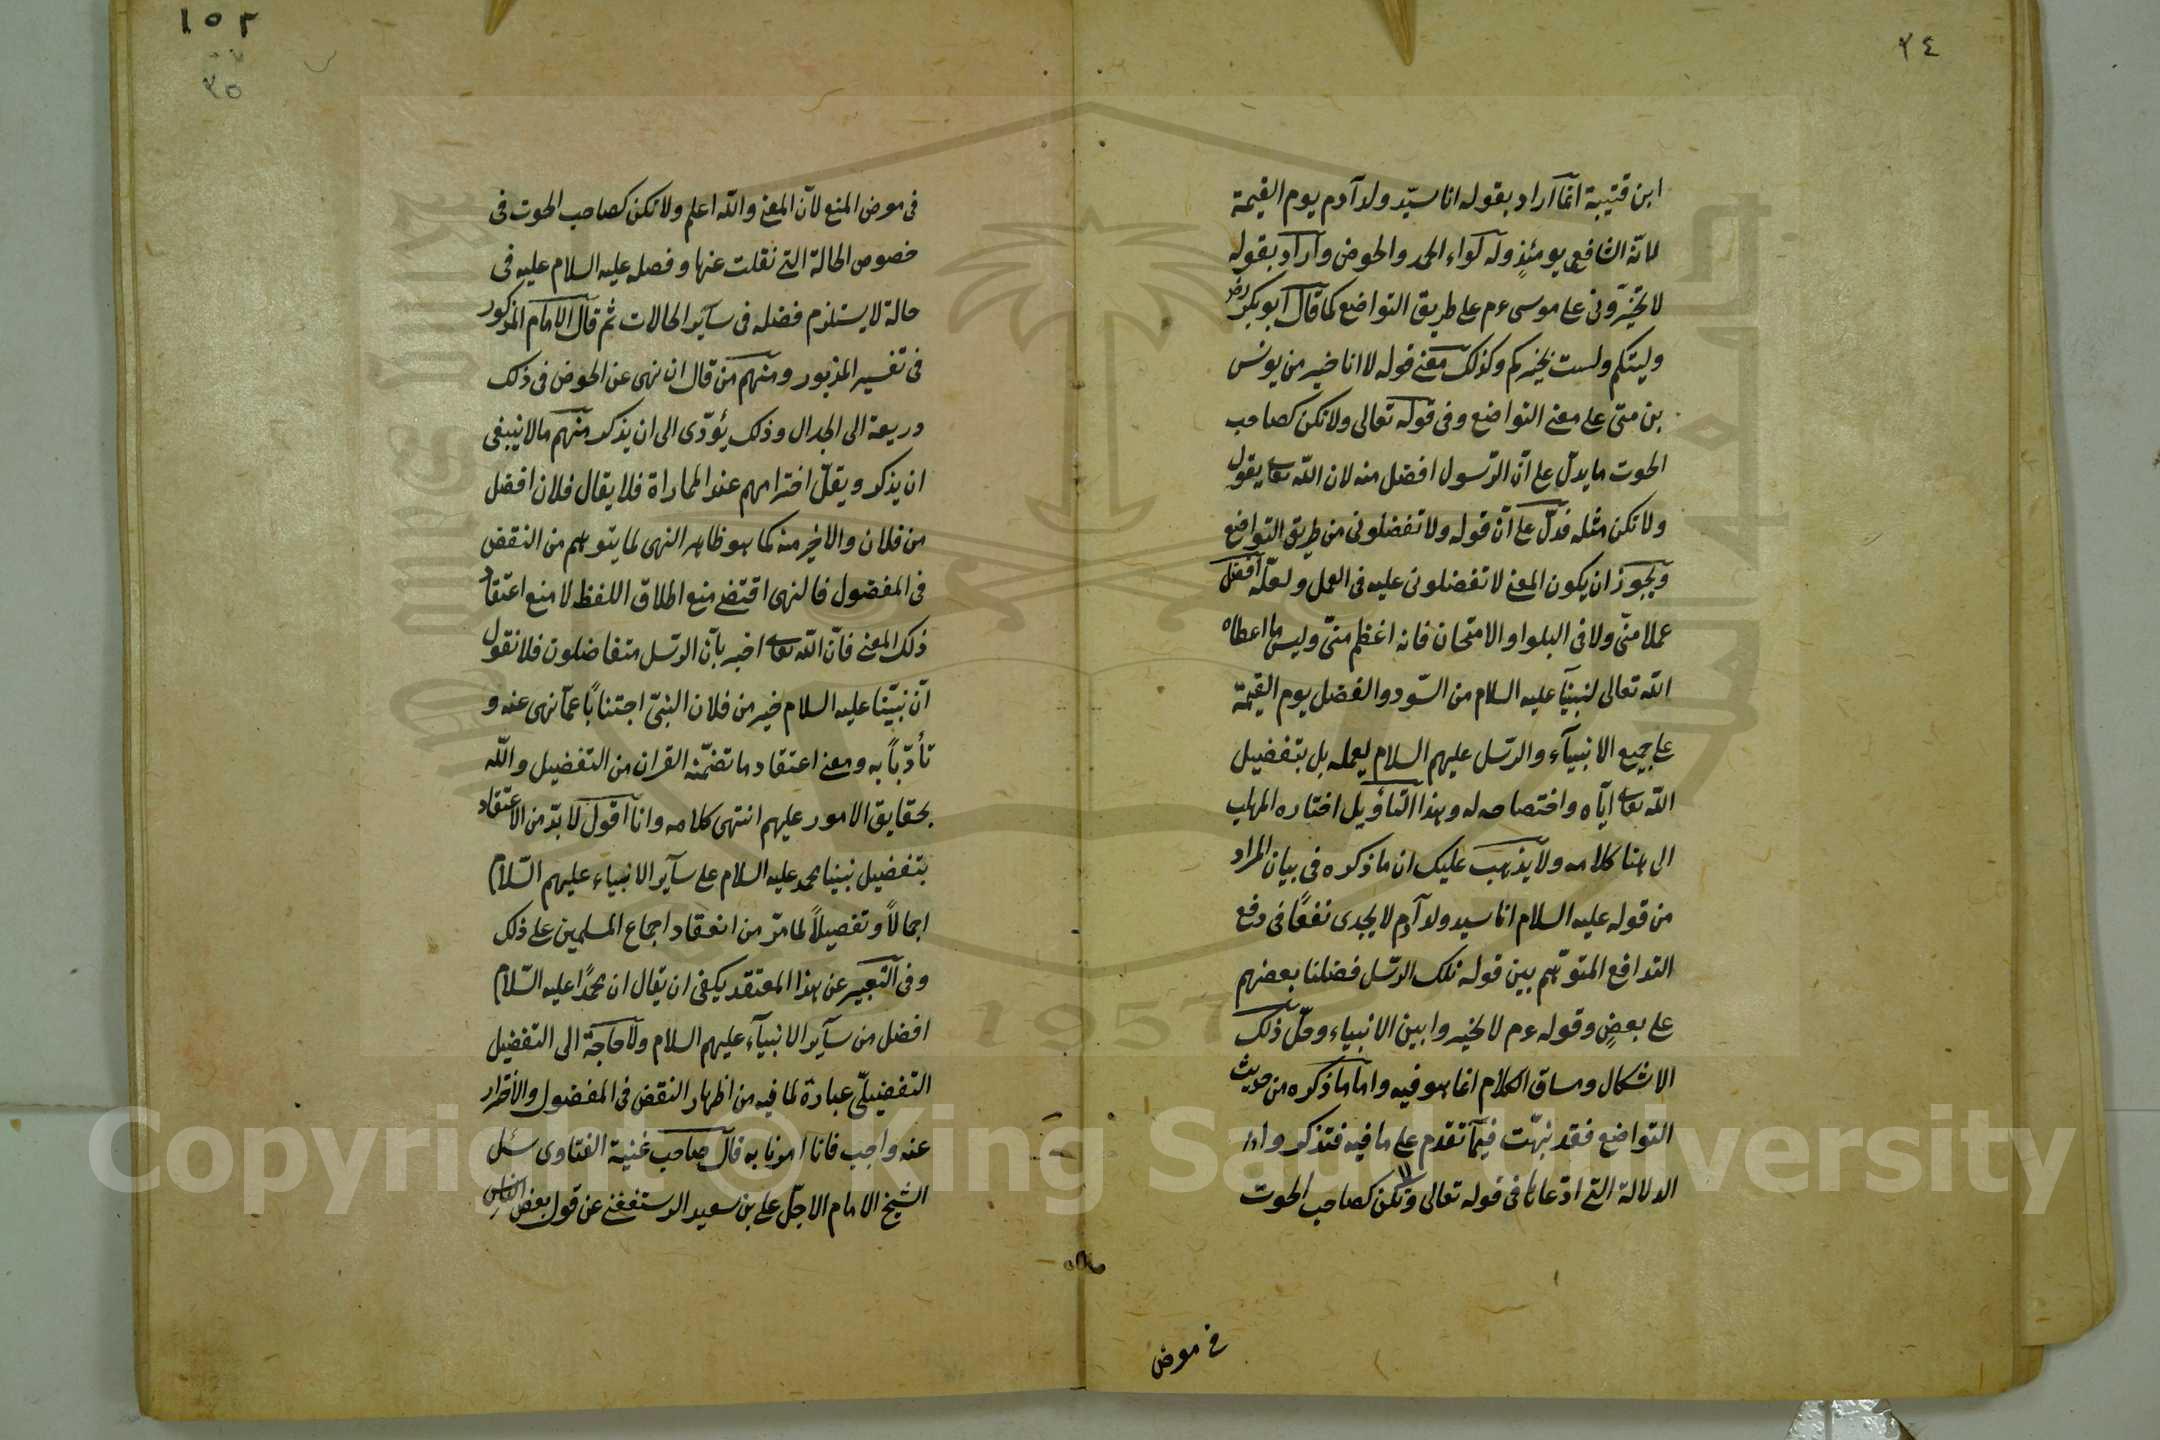 ٣٤
ابن قتيبة انما اراد بقوله انا سيّد ولد آدم يوم القيمة
لانّه الشافع يومئذٍ وله لواء الحمد والحوض واراد بقوله
لا تخيّروني على موسى ءم على طريق التواضع كما قال ابو بكر رض
وليتكم ولست بخيركم وكذلك معنى قوله لا انا خير من يونس
بن متى على معنى التواضع وفي قوله تعالى ولا تكن كصاحب
الحوت ما يدلّ على انّ الرّسول افضل منه لان الله تعالى يقول
ولا تكن مثله فدلّ على انّ قوله ولا تفضلوني من طريق التواضع
ويجوز ان يكون المعنى لا تفضلوني عليه في العمل ولعلّه افضل
عملا منّي ولا في البلوا والامتحان فانه اعظم منّي وليس ما اعطاه
الله تعالى لنبيّنا عليه السلام من السّودد والفضل يوم القيمة
على جميع الانبيآء والرسل عليهم السلام لعمله بل بتفضيل
الله تعالى ايّاه واختصاصه له وهذا التأويل اختاره المهلب
الى هنا كلامه ولا يذهب عليك ان ما ذكره في بيان المراد
من قوله عليه السلام انا سيد ولد آدم لا يجدى نفعًا في دفع
التدافع المتوهّم بين قوله تلك الرسّل فضلنا بعضهم
على بعضٍ وقوله ءم لا تخيروا بين الانبياء وحلّ ذلك
الاشكال ومساق الكلام انما هو فيه واما ما ذكره من حديث
التواضع فقد نبهّت فيما تقدم على ما فيه فتذكر واما
الدلالة التى ادّعاها في قوله تعالى ولا تكن كصاحب الحوت
في موض
١٥٢
٣٥
في موض المنع لانّ المعنى والله اعلم ولا تكن كصاحب الحوت في
خصوص الحالة التى نقلت عنها وفصله عليه السلام عليه في
حالة لا يستلزم فضله في سآئر الحالات ثم قال الامام المذكور
في تفسير المزبور ومنهم من قال ان نهى عن الحوض في ذلك
دريعة الى الجدال وذلك يؤدّى الى ان يذكر منهم ما لا ينبغى
ان يذكر ويقلّ احترامهم عند المماراة فلا يقال فلان افضل
من فلان والاخير منه كما هو ظاهر النهى لما يتوهم من النقض
في المفضول فالنهى اقتضى منع اطلاق اللفظ لا منع اعتقاد
ذلك المعنى فانّ الله تعالى اخبر بانّ الرسّل متفاضلون فلا نقول
انّ نبيّنا عليه السلام خير من فلان النبىّ اجتنابًا عمّا نهى عنه و
تأدّبًا به ومعنى اعتقاد ما تضمّنه القران من التفضيل والله
بحقايق الامور عليهم انتهى كلامه وانا اقول لا بدّ من الاعتقاد
بتفضيل نبينا محمد عليه السلام على سآير الانبياء عليهم السّلام
اجمالًا وتفصيلًا لما مرّ من انعقاد اجماع المسلمين على ذلك
وفي التعبير عن هذا المعتقد يكفى ان يقال ان محمدًا عليه السّلام
افضل من سآير الانبيآء عليهم السلام ولا حاجة الى التفضيل
التفضيلّى عبارة لما فيه من اظهار النقض في المفضول والاحتراز
عنه واجب فانا امرنا به قال صاحب غنية الفتاوى سئل
الشيخ الامام الاجلّ على بن سعيد الرستغفنى عن قول بعض الناس
Copyright © King Saud University
1957